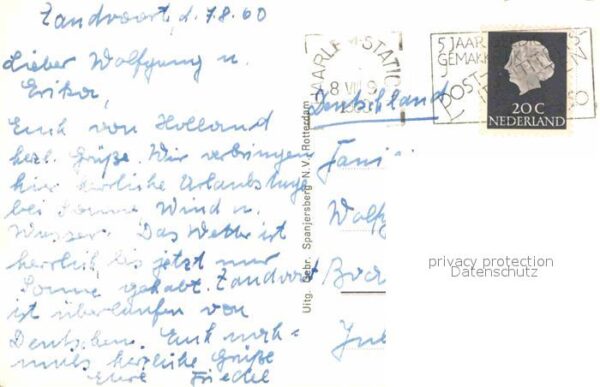 Zandvoort, d. 7.8.60
Lieber Wolfgang u.
Erika,
Euch von Holland
herzl. Grüße. Wir verbringen
hier herrliche Urlaubstage
bei Sonne, Wind u.
Wasser. Das Wetter ist
herrlich, bis jetzt nur
Sonne gehabt. Zandvoort
ist überlaufen von
Deutschen. Euch noch=
mals herzliche Grüße
Eure Friedel
Uitg. Gebr. Spanjersberg N.V., Rotterdam
HAARLEM-STATIO
8 VIII 9
1960
5 JAAR
GEMAK
POST
Deutschland
20 C
NEDERLAND
Fami
Wolfg
privacy protection
Datenschutz